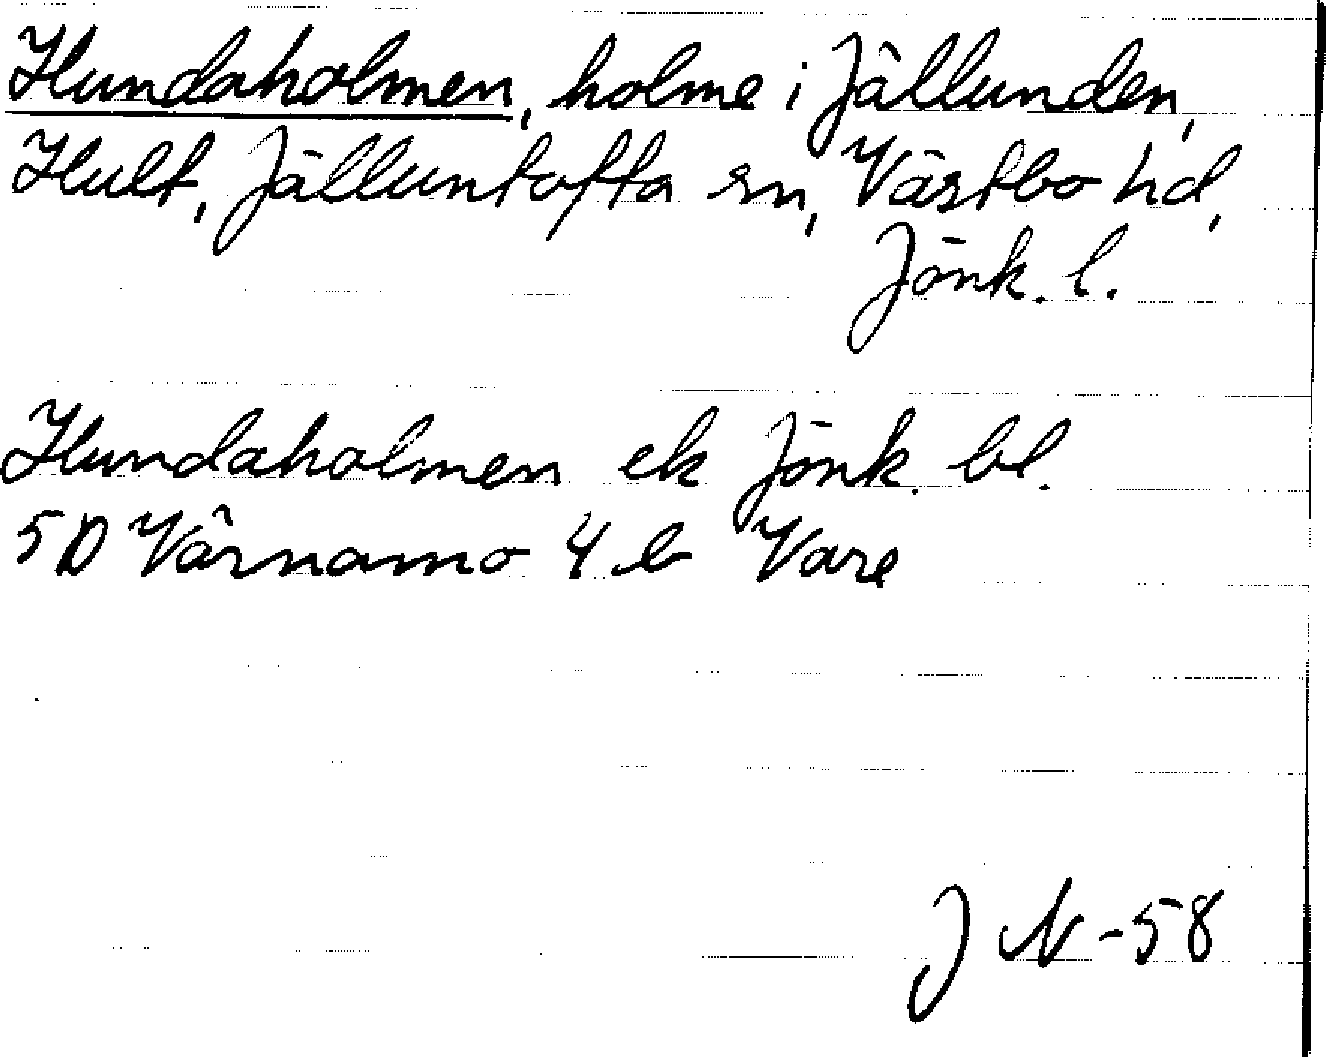 Hundaholmen, holme i Jällunden,
Hult, Jälluntofta sn, Västbo hd,
Jönk. l.
Hundaholmen ek Jönk. bl.
5D Värnamo 4 b Vare
J N -58